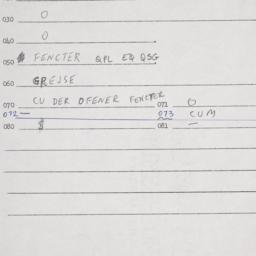 030 O
040 O
050 FENCTER QPL EQ QSG
060 GREJSE
070 CU DER OFENER FENCTER 071 O
072 — 073 CUM
080 $ 081 —